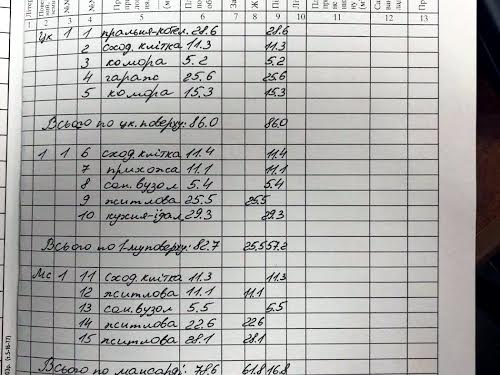 1 2 3 4 5 6 7 8 9 10 11 12 13
цк 1 1 пральня-котел. 28.6 28.6
2 сход. клітка 11.3 11.3
3 комора 5.2 5.2
4 гараж 25.6 25.6
5 комора 15.3 15.3
Всього по цк. поверху: 86.0 86.0
1 1 6 сход. клітка 11.4 11.4
7 прихожа 11.1 11.1
8 сан. вузол 5.4 5.4
9 житлова 25.5 25.5
10 кухня-їдал 29.3 29.3
Всього по 1-му поверху: 82.7 25.5 57.2
Мс 1 11 сход. клітка 11.3 11.3
12 житлова 11.1 11.1
13 сан. вузол 5.5 5.5
14 житлова 22.6 22.6
15 житлова 28.1 28.1
Всього по мансарді: 78.6 61.8 16.8